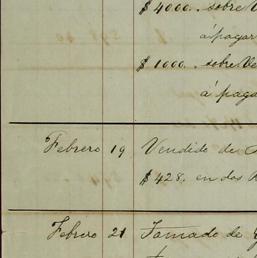 $4000. sobre
á pagar
$1000. sobre Ve
á paga
Febrero 19 Vendido de
$428. en dos
Febrero 21 Tomado de